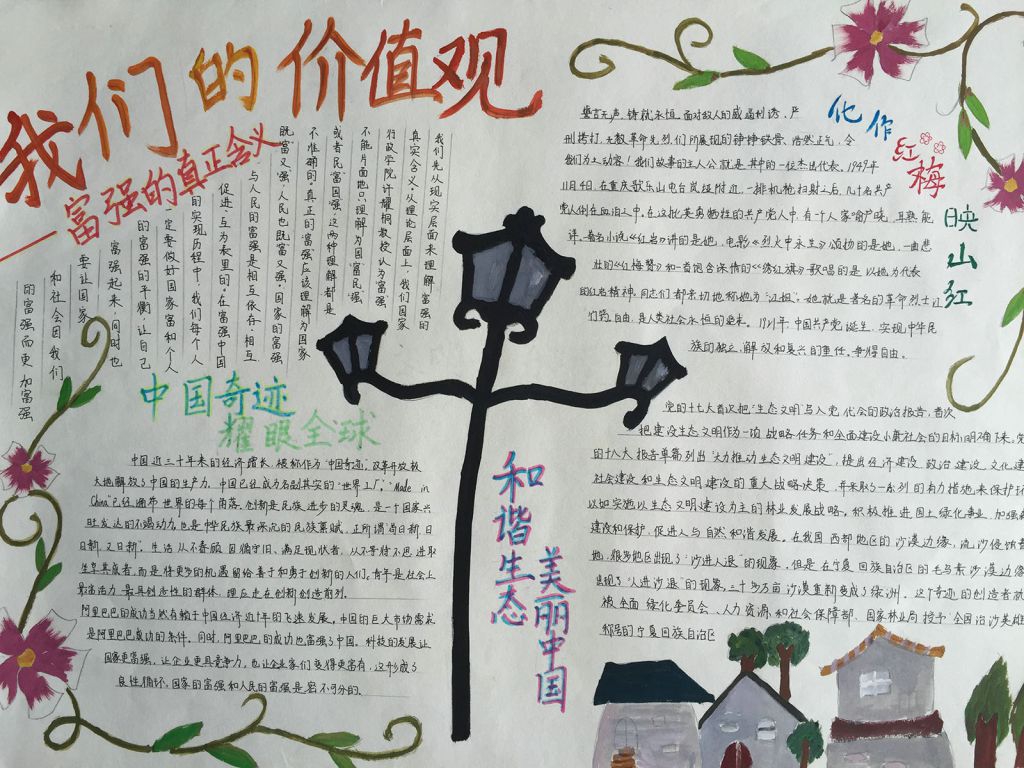 我们的价值观
——富强的真正含义
我们先从现实层面来理解富强的
真实含义,从理论层面上,我们国家
行政学院许耀桐教授认为富强
不能片面地只理解为国富民强,
或者民富国强,这两种理解都是
不准确的,真正的富强应该理解为国家
既富又强,人民也既富又强,国家的富强
与人民的富强是相互依存,相互
促进、互为表里的,在富强中国
的实现历程中,我们每个人
一定要做好国家富和个人
的富强的平衡,让自己
富强起来,同时也
要让国家
和社会因我们
的富强而更加富强
中国奇迹
耀眼全球
中国近三十年来的经济增长,被称作为“中国奇迹”,改革开放极
大地解放了中国的生产力,中国已经成为名副其实的“世界工厂”,“Made in
China”已经遍布世界的每个角落,创新是民族进步的灵魂,是一个国家兴
旺发达的不竭动力,也是中华民族最深沉的民族禀赋,正所谓“苟日新,日
日新,又日新”。生活从不眷顾因循守旧、满足现状者,从不等待不思进取
坐享其成者,而是将更多的机遇留给善于和勇于创新的人们。青年是社会上
最富活力、最具创造性的群体,理应走在创新创造前列。
阿里巴巴的成功当然有赖于中国经济近年的飞速发展,中国的巨大市场需求
是阿里巴巴成功的条件。同时,阿里巴巴的成功也富强了中国。科技的发展让
国家更富强,让企业更具竞争力,也让企业家们变得更富有,这形成了
良性循环,国家的富强和人民的富强是密不可分的。
和谐生态
美丽中国
化作
红梅
映山红
誓言无声,铸就永恒,面对敌人的威逼利诱、严
刑拷打,无数革命先烈们所展现的铮铮铁骨、浩然正气,令
他们为之动容!我们故事的主人公就是其中的一位杰出代表,1949年
11月14日,在重庆歌乐山电台岚垭附近,一排机枪扫射之后,几十名共产
党人倒在血泊之中。在这批英勇牺牲的共产党人中,有一个人家喻户晓,耳熟能
详,著名小说《红岩》讲的是她,电影《烈火中永生》颂扬的是她,一曲悲
壮的《红梅赞》和一首饱含深情的《绣红旗》歌唱的是以她为代表
的红岩精神,同志们都亲切地称她为“江姐”,她就是著名的革命烈士江
竹筠,自由,是人类社会永恒的追求。1921年,中国共产党诞生,实现中华民
族的独立、解放和复兴的重任。争得自由。
党的十七大首次把“生态文明”写入党代会的政治报告,首次
把建设生态文明作为一项战略任务和全面建设小康社会的目标明确下来,党
的十八大报告单篇列出“大力推动生态文明建设”,提出经济建设、政治建设、文化建
社会建设和生态文明建设的重大战略决策,并采取了一系列的有力措施来保护环
以如实施以生态文明建设为主的林业发展战略,积极推进国土绿化事业,加强森
建设和保护,促进人与自然和谐发展,在我国西部地区的沙漠边缘,流沙侵蚀着
地,很多地区出现了“沙进人退”的现象,但是在宁夏回族自治区的毛乌素沙漠边缘
出现了“人进沙退”的现象,三十多万亩沙漠重新变成了绿洲。这个奇迹的创造者就
被全面绿化委员会、人力资源和社会保障部、国家林业局授予“全国治沙英雄
称号的宁夏回族自治区